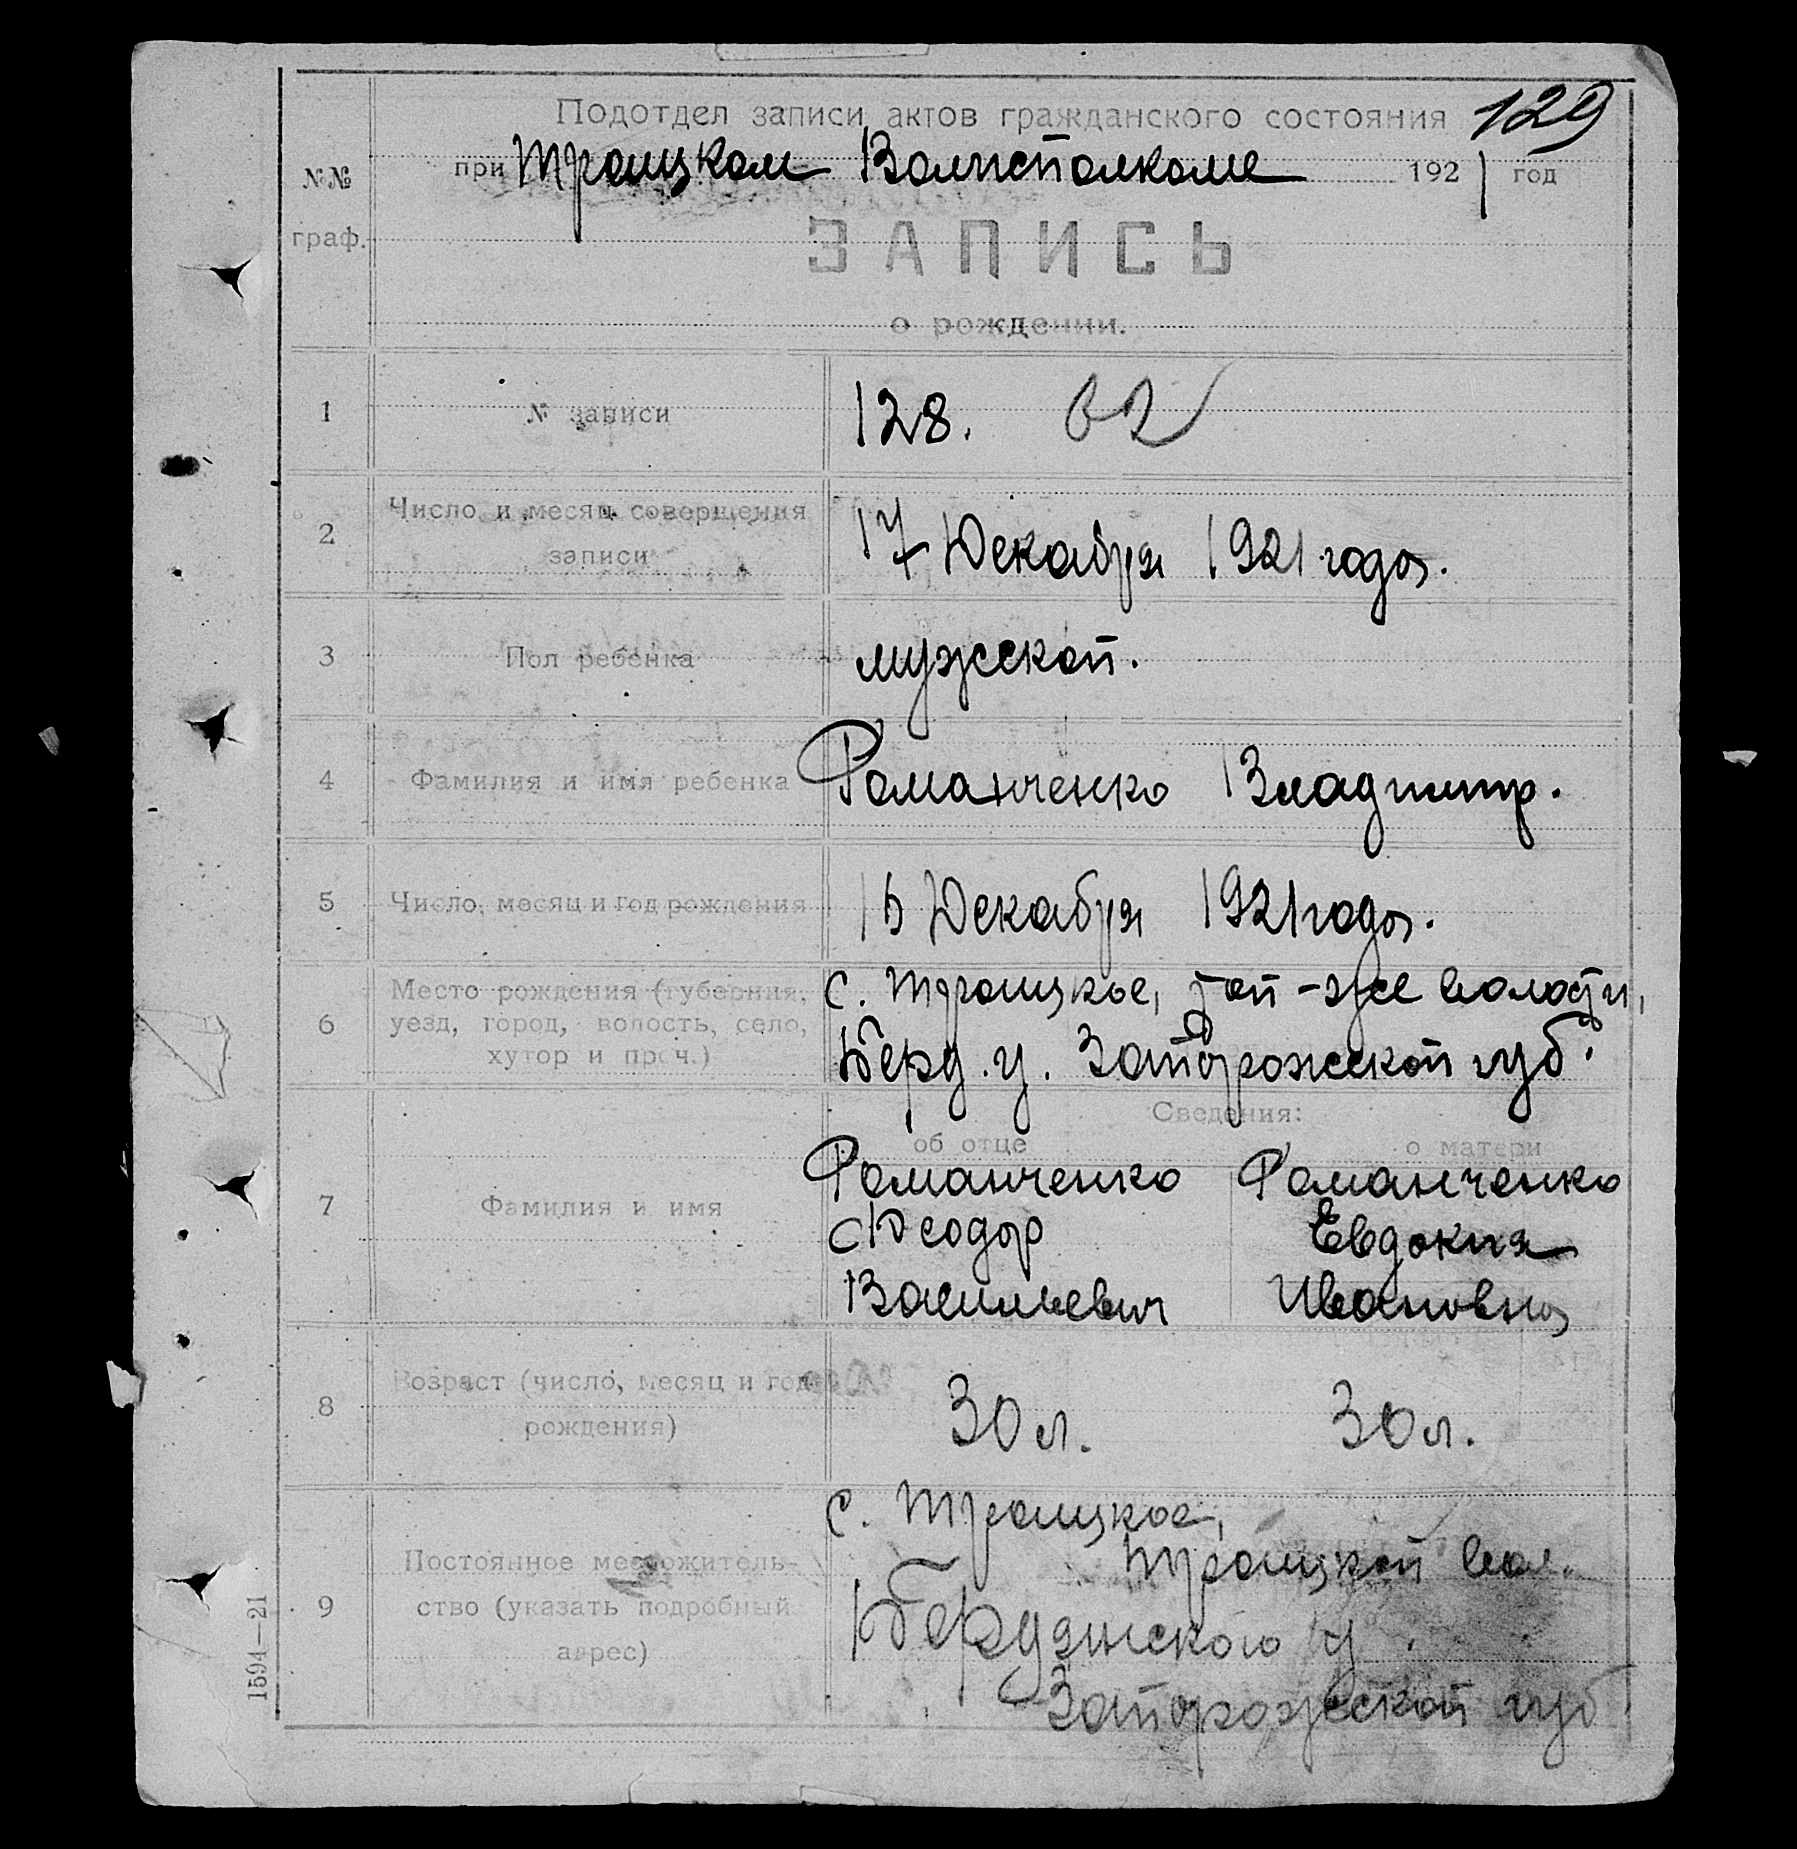 129
Подотдел записи актов гражданского состояния
при Троицком Волисполкоме 1921 год
№№ граф.
ЗАПИСЬ
о рождении.
1 № записи 128.
2 Число и месяц совершения записи 17 Декабря 1921 года.
3 Пол ребенка мужской.
4 Фамилия и имя ребенка Романченко Владимир.
5 Число, месяц и год рождения 16 Декабря 1921 года.
6 Место рождения (губерния, уезд, город, волость, село, хутор и проч.)
с. Троицкое, той-же волости,
Берд. у. Запорожской губ.
Сведения:
об отце о матери
7 Фамилия и имя
Романченко Романченко
Феодор Евдокия
Васильевич Ивановна
8 Возраст (число, месяц и год рождения) 30 л. 30 л.
9 Постоянное местожительство (указать подробный адрес)
с. Троицкое,
Троицкой вол.
Бердянского у.
Запорожской губ.
1594—21